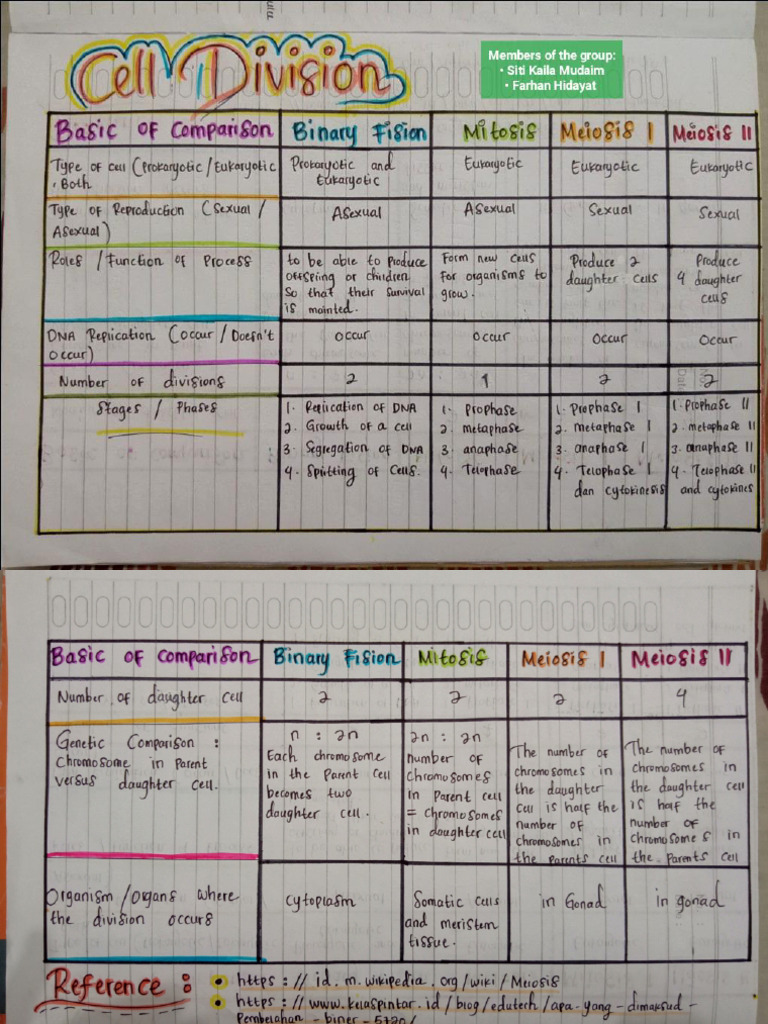 Cell Division
Members of the group:
• Siti Kaila Mudaim
• Farhan Hidayat
Basic of Comparison
Binary Fision
Mitosis
Meiosis I
Meiosis II
Type of cell (Prokaryotic / Eukaryotic
, Both
Prokaryotic and
Eukaryotic
Eukaryotic
Eukaryotic
Eukaryotic
Type of Reproduction (Sexual /
Asexual)
Asexual
Asexual
Sexual
Sexual
Roles / Function of Process
to be able to produce
offspring or children
So that their survival
is mainted.
Form new cells
for organisms to
grow.
Produce 2
daughter cells
Produce
4 daughter
cells
DNA Replication (occur / Doesn't
occur)
occur
occur
occur
occur
Number of divisions
2
1
2
2
Stages / Phases
1. Replication of DNA
2. Growth of a cell
3. Segregation of DNA
4. Splitting of cells.
1. Prophase
2. metaphase
3. anaphase
4. Telophase
1. Prophase I
2. metaphase I
3. anaphase I
4. Telophase I
dan cytokinesis
1. Prophase II
2. metaphase II
3. anaphase II
4. Telophase II
and cytokines
Basic of comparison
Binary Fision
Mitosis
Meiosis I
Meiosis II
Number of daughter cell
2
2
2
4
Genetic Comparison :
Chromosome in Parent
versus daughter cell.
n : 2n
Each chromosome
in the parent cell
becomes two
daughter cell.
2n : 2n
number of
chromosomes
in parent cell
= chromosomes
in daughter cell
The number of
chromosomes in
the daughter
cell is half the
number of
chromosomes in
the parents cell
The number of
chromosomes in
the daughter cell
is half the
number of
chromosomes in
the parents cell
Organism / organs where
the division occurs
cytoplasm
Somatic cells
and meristem
tissue.
in Gonad
in gonad
Reference :
https : // id. m. wikipedia. org / wiki / Meiosis
https : // www. kelaspintar. id / blog / edutech / apa - yang - dimaksud -
Pembelahan - biner - 5720 /